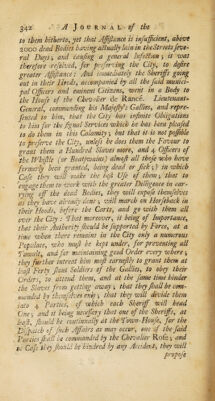 342 A JOURNAL of the
to them hitherto, yet that Assistance is insufficient, above
2000 dead Bodies having actually lain in the Streets seve-
ral Days, and causing a general Infection; it was
therefore resolved, for preserving the City, to desire
greater Assistance: And immediately the Sheriffs going
out in their Hoods, accompanied by all the said munici-
pal Officers and eminent Citizens, went in a Body to
the House of the Chevalier de Rancé, Lieutenant-
General, commanding his Majesty's Gallies, and repre-
sented to him, that the City has infinite Obligations
to him for the signal Services which he has been pleased
to do them in this Calamity; but that it is not possible
to preserve the City, unless he does them the Favour to
grant them a Hundred Slaves more, and 4 Officers of
the Whistle (or Boatswains) almost all those who have
formerly been granted, being dead or sick; in which
Case they will make the best Use of them; that to
engage them to work with the greater Diligence in car-
rying off the dead Bodies, they will expose themselves
as they have already done, will march on Horseback in
their Hoods, before the Carts, and go with them all
over the City: That moreover, it being of Importance,
that their Authority should be supported by Force, at a
time when there remains in the City only a numerous
Populace, who must be kept under, for preventing all
Tumult, and for maintaining good Order every where;
they further intreat him most earnestly to grant them at
least Forty stout Soldiers of the Gallies, to obey their
Orders, to attend them, and at the same time hinder
the Slaves from getting away; that they shall be com-
manded by themselves only; that they will divide them
into 4 Parties, of which each Sheriff will head
One; and it being necessary that one of the Sheriffs, at
least, should be continually at the Town-House, for the
Dispatch of such Affairs as may occur, one of the said
Parties shall be commanded by the Chevalier Rose; and
in Case they should be hindred by any Accident, they will
propose